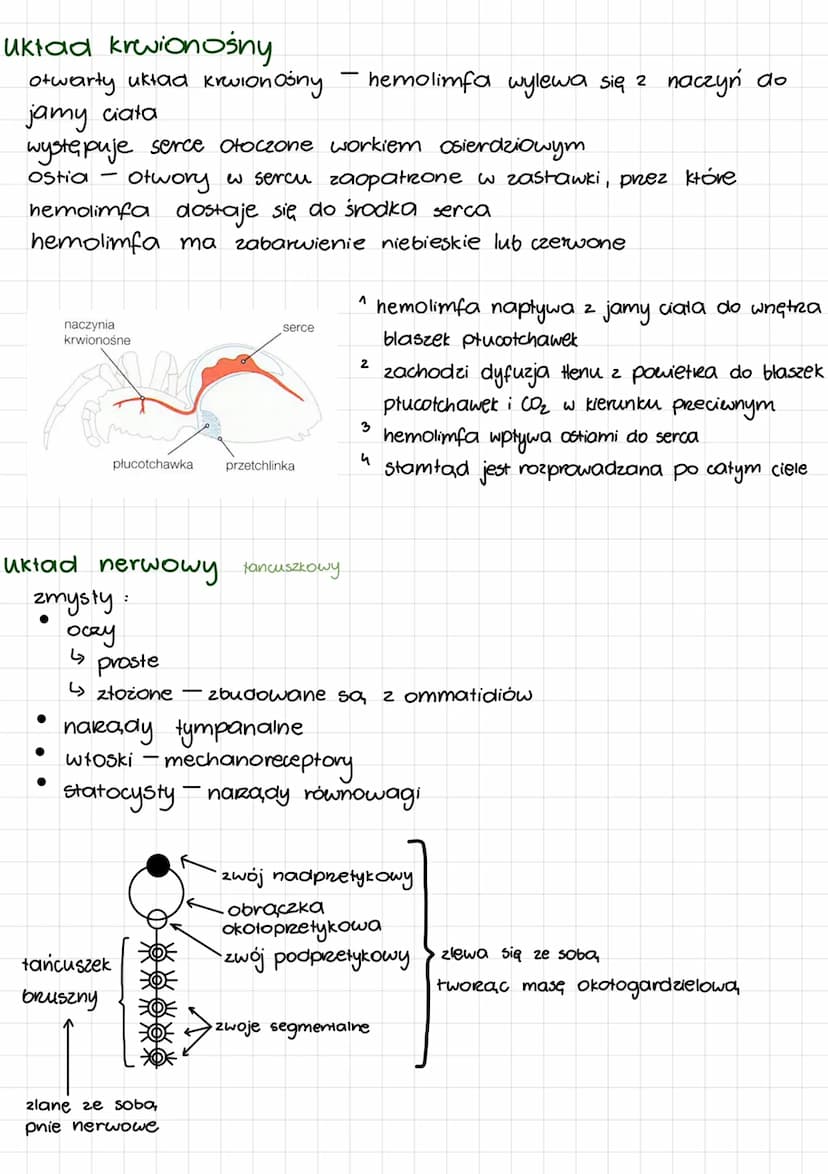 układ krwionośny
otwarty układ krwionośny – hemolimfa wylewa się z naczyń do
jamy ciała
występuje serce otoczone workiem osierdziowym
ostia – otwory w sercu zaopatrzone w zastawki, przez które
hemolimfa dostaje się do środka serca
hemolimfa ma zabarwienie niebieskie lub czerwone
naczynia
krwionośne
serce
płucotchawka
przetchlinka
1 hemolimfa napływa z jamy ciała do wnętrza
blaszek płucotchawek
2 zachodzi dyfuzja tlenu z powietrza do blaszek
płucotchawek i CO2 w kierunku przeciwnym
3 hemolimfa wpływa ostiami do serca
4 stamtąd jest rozprowadzana po całym ciele
układ nerwowy łańcuszkowy
zmysły :
• oczy
↳ proste
↳ złożone – zbudowane są z ommatidiów
• narządy tympanalne
• włoski – mechanoreceptory
• statocysty – narządy równowagi
zwój nadprzełykowy
obrączka
okołoprzełykowa
zwój podprzełykowy
zlewa się ze sobą
tworząc masę okołogardzielową
łańcuszek
bruszny
zwoje segmentalne
zlane ze sobą
pnie nerwowe